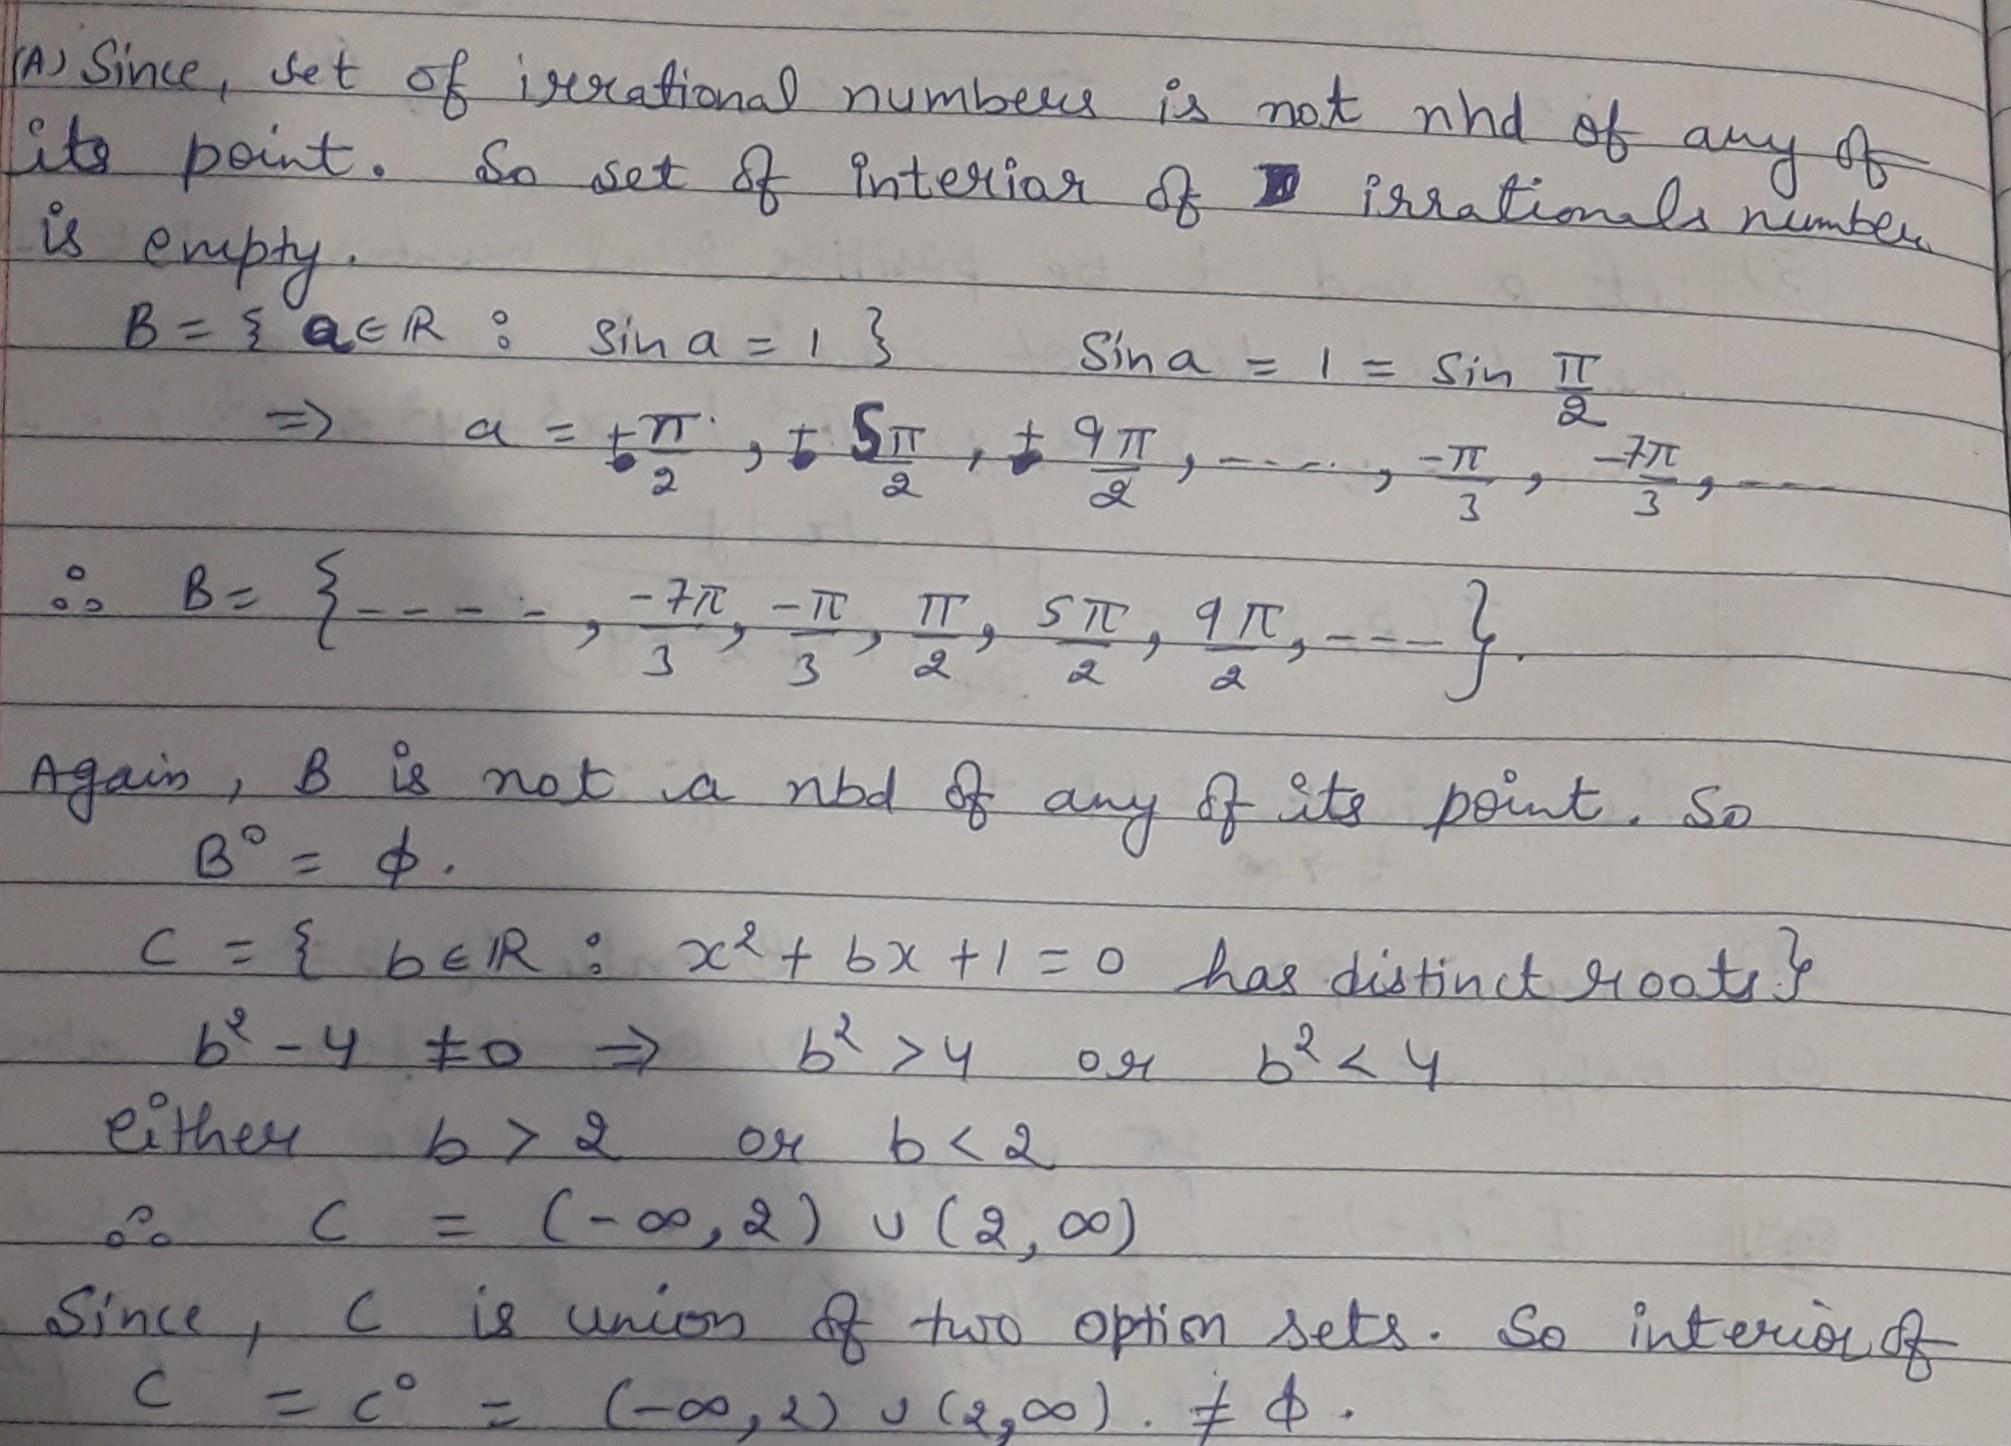 (A) Since, set of irrational numbers is not nhd of any of
its point. So set of interior of irrationals number
is empty.
B = { a ∈ ℝ : sin a = 1 } Sin a = 1 = sin π/2
⇒ a = ±π/2, ± 5π/2, ± 9π/2, ----, -π/3, -7π/3, ---
∴ B = { ----, -7π/3, -π/3, π/2, 5π/2, 9π/2, --- }.
Again, B is not a nbd of any of its point. So
B° = ϕ.
C = { b ∈ ℝ : x² + bx + 1 = 0 has distinct roots}
b² - 4 ≠ 0 ⇒ b² > 4 or b² < 4
either b > 2 or b < 2
∴ C = (-∞, 2) ∪ (2, ∞)
Since, C is union of two option sets. So interior of
C = C° = (-∞, 2) ∪ (2, ∞). ≠ ϕ.